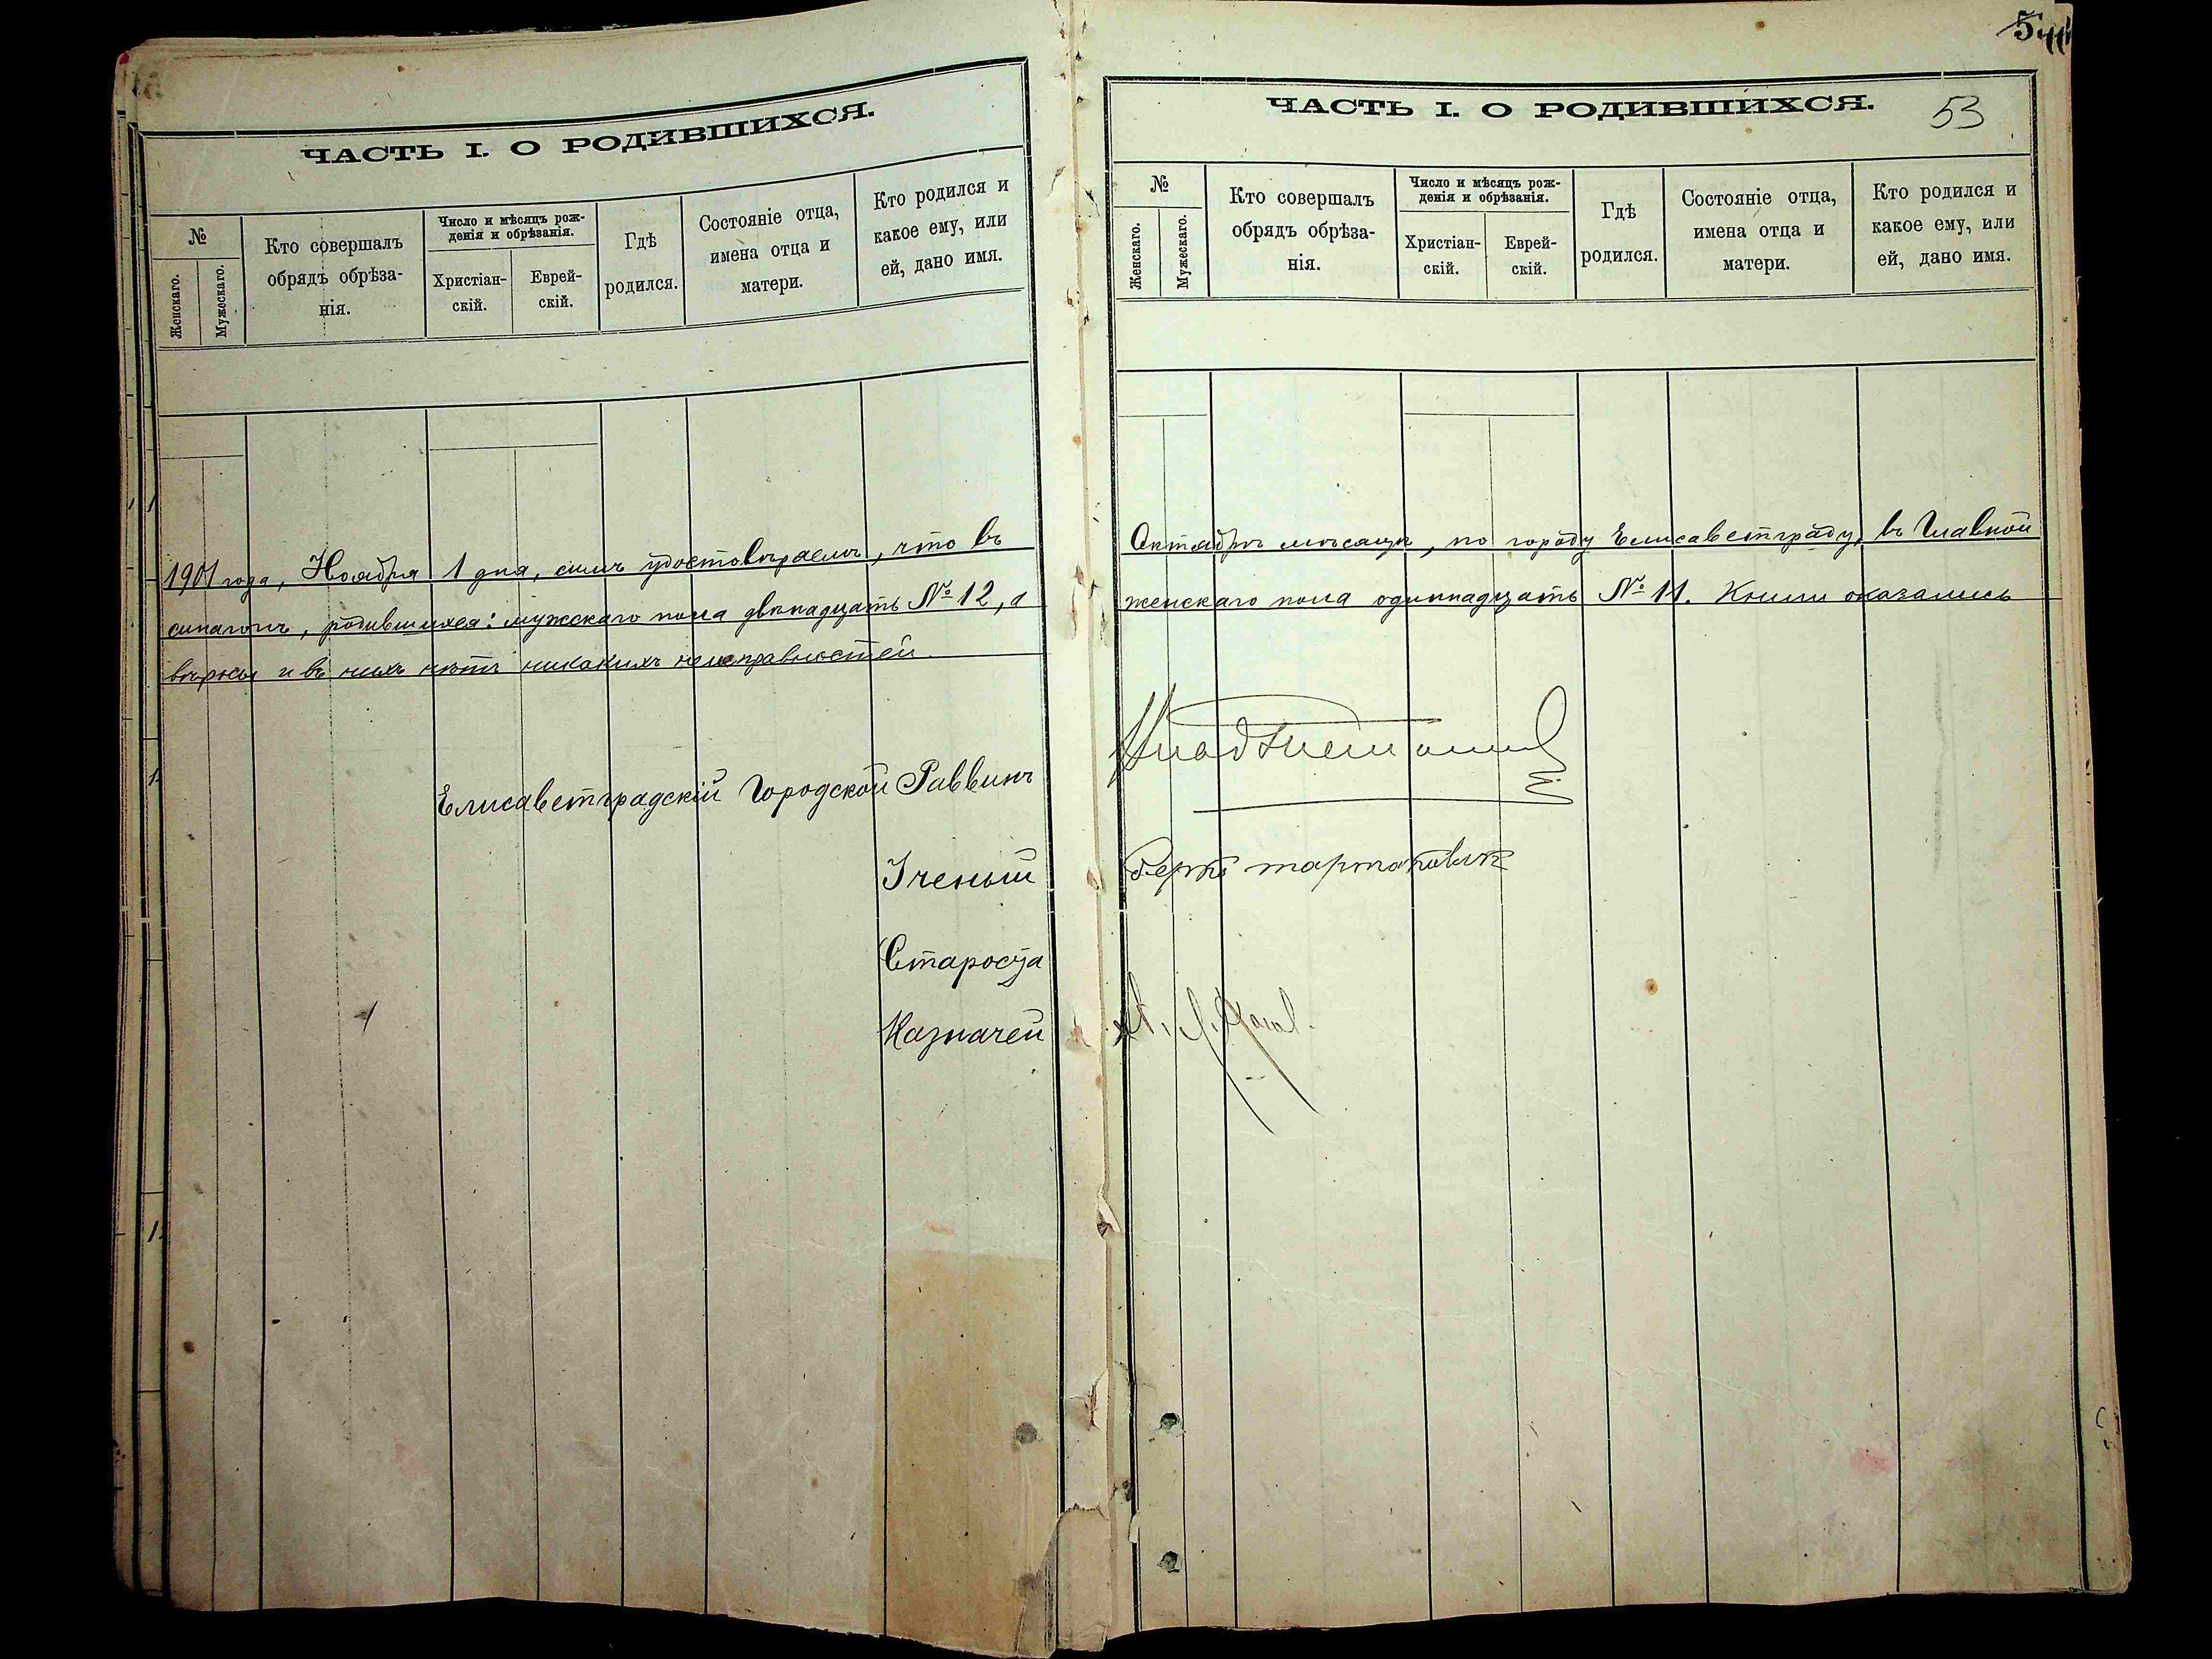 ЧАСТЬ I. О РОДИВШИХСЯ.
№
Женскаго.
Мужескаго.
Кто совершалъ
обрядъ обрѣза-
нія.
Число и мѣсяцъ рож-
денія и обрѣзанія.
Христіан-
скій.
Еврей-
скій.
Гдѣ
родился.
Состояніе отца,
имена отца и
матери.
Кто родился и
какое ему, или
ей, дано имя.
1901 года, Ноября 1 дня, симъ удостовѣряемъ, что въ
синагогѣ, родившихся: мужскаго пола двѣнадцать № 12, а
вѣрны и въ нихъ нѣтъ никакихъ неисправностей.
Елисаветградскій Городской Раввинъ
Ученый
Староста
Казначей
54
ЧАСТЬ I. О РОДИВШИХСЯ.
53
№
Женскаго.
Мужескаго.
Кто совершалъ
обрядъ обрѣза-
нія.
Число и мѣсяцъ рож-
денія и обрѣзанія.
Христіан-
скій.
Еврей-
скій.
Гдѣ
родился.
Состояніе отца,
имена отца и
матери.
Кто родился и
какое ему, или
ей, дано имя.
Октябрѣ мѣсяцѣ, по городу Елисаветграду, въ Главной
женскаго пола одиннадцать № 11. Книги оказались
Берко тартаковск